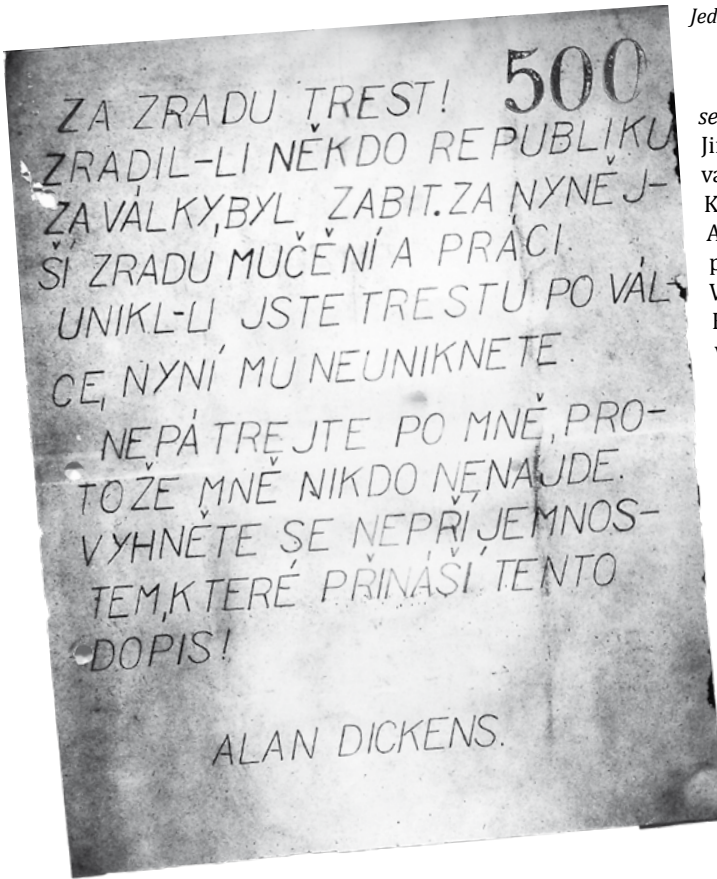 Jed
500
ZA ZRADU TREST!
ZRADIL-LI NĚKDO REPUBLIKU
ZA VÁLKY, BYL ZABIT. ZA NYNĚJ-
ŠÍ ZRADU MUČENÍ A PRÁCI.
UNIKL-LI JSTE TRESTU PO VÁL-
CE, NYNÍ MU NEUNIKNETE.
NEPÁTREJTE PO MNĚ, PRO-
TOŽE MNĚ NIKDO NENAJDE.
VYHNĚTE SE NEPŘÍJEMNOS-
TEM, KTERÉ PŘINÁŠÍ TENTO
DOPIS!
ALAN DICKENS.
se
Ji
va
K
A
p
V